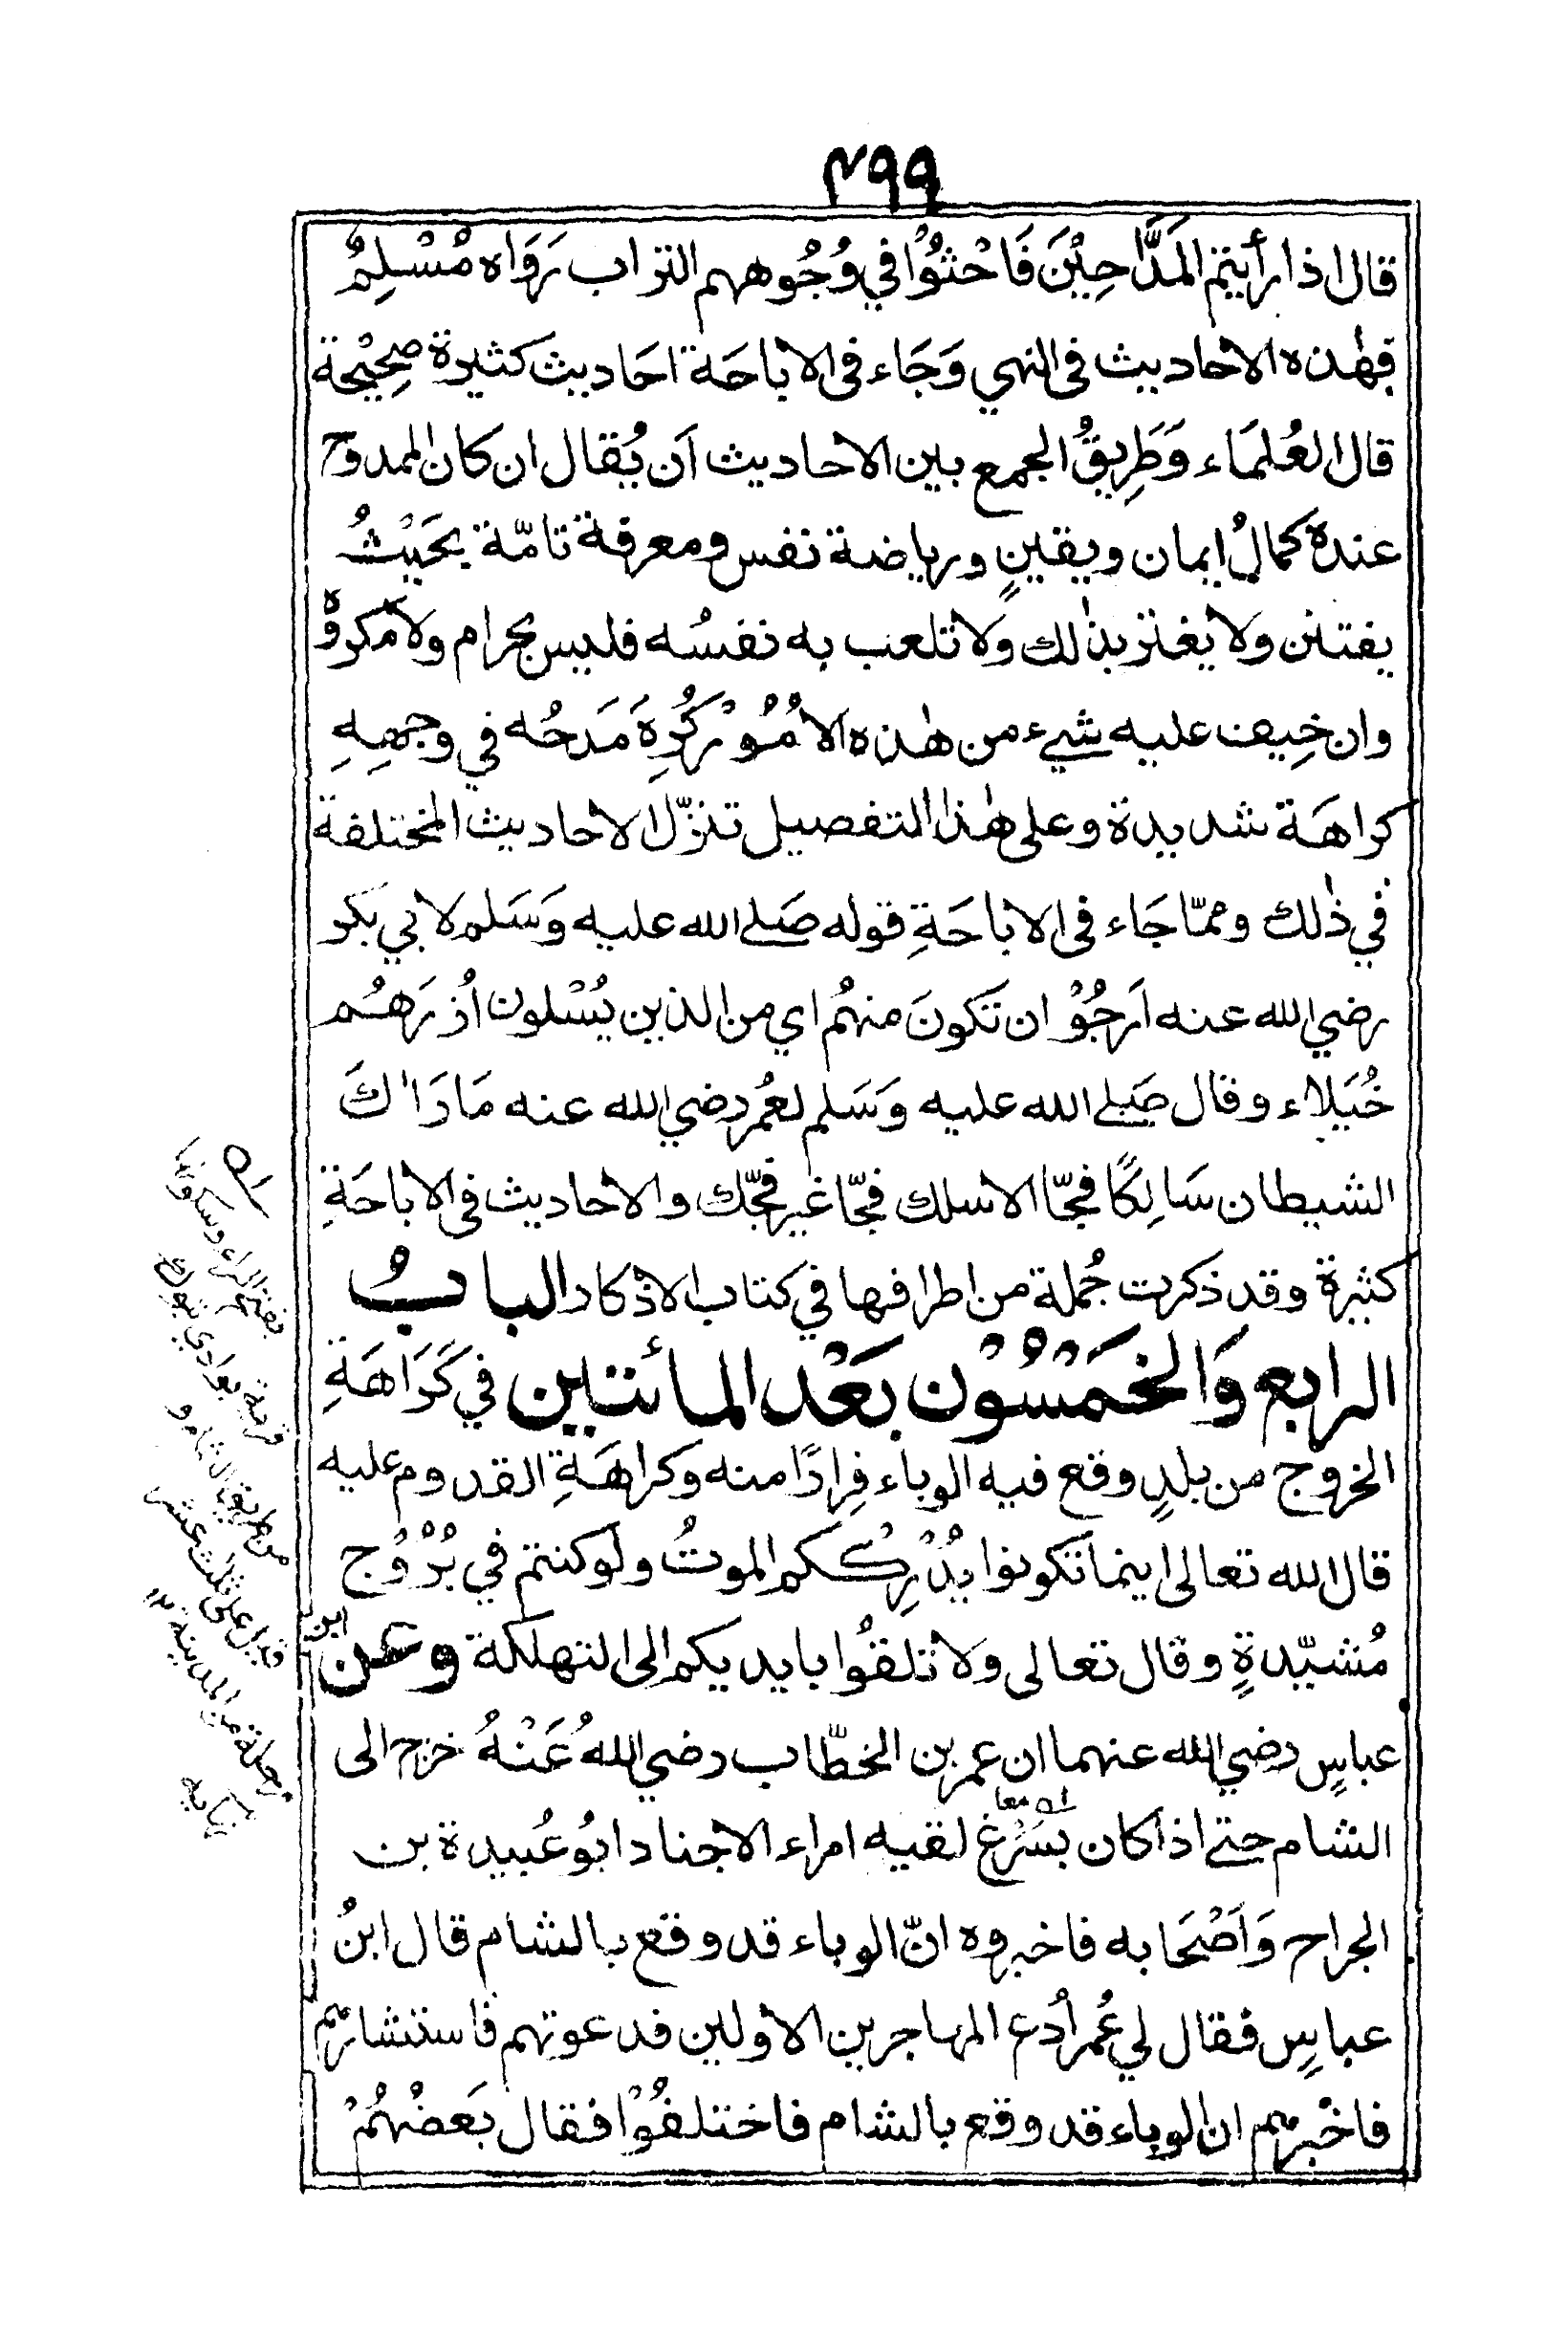 ٤٩٩
قال اذا رأيتم المَدَّاحِيْنَ فَاحْثُوْا في وُجُوههم التراب رَوَاه مُسْلِمٌ
فهٰذه الاحاديث فى النهي وَجَاء فى الاباحَة احَاديث كثيرة صِحِيْحة
قال العُلمَاء وَطَرِيقُ الجمع بين الاحاديث اَن يُقال ان كان الممدوح
عندهٗ كمالُ ايمان ويقينٍ ورياضة نفس ومعرفة تامّة بحَيْثُ
يفتنن ولا يغتر بذٰلك ولا تلعب به نفسُه فليس بحرام ولا مَكروْهٗ
وان خِيف عليه شيء من هٰذه الامُوْر كُرِهَ مَدحُه في وجهِهِ
كراهَة شديدة وعلى هٰذا التفصيل تنزّل الاحاديث المختلفة
في ذٰلك وممّا جَاء فى الاباحَةِ قوله صَلى الله عليه وَسَلم لابي بكر
رضي الله عنه اَرجُوْ ان تَكونَ منهُم اي من الذين يُسْلون اُذُرَهُم
خُيَلاء وقال صَلى الله عليه وَسَلم لعُمر رضي الله عنه مَا رَاٰكَ
الشيطان سَالِكًا فجّا الا سلك فجّا غير فجّك والاحاديث فى الاباحَةِ
كثيرة وقد ذكرت جُملة من اطرافها في كتاب الاذكار البابُ
الرابع وَالخَمْسُوْن بَعْد المائتين في كَرَاهَةِ
الخروج من بلدٍ وقع فيه الوباء فِرارًا منه وكراهَةِ القدوم عليه
قال الله تعالى اينما تكونوا يُدْرِكْكم الموتُ ولو كنتم في بُرُوْج
مُشيّدةٍ وقال تعالى ولا تُلقُوا بايديكم الى التهلكة وعن ابن
عباسٍ رضي الله عنهما ان عمر بن الخطّاب رضي اللهُ عَنْهُ خرج الى
الشام حتى اذا كان بسَرْغ لقيه امراء الاجناد ابُو عُبيدة بن
الجراح وَاَصْحَابه فاخبروه انّ الوباء قد وقع بالشام قال ابنُ
عباسٍ فقال لي عُمر اُدع المهاجرين الاولين فدعوتهم فاستشارهم
فاخْبرهم ان الوباء قد وقع بالشام فاختلفُوْا فقال بَعضُهُمْ
ا٥ معا
ا٥
بفتح الراء وسكونها
قرية بوادي تبوك
من طريق الشام و
قيل على ثلث عشر
مرحلة من المدينة ١٢
نهايه